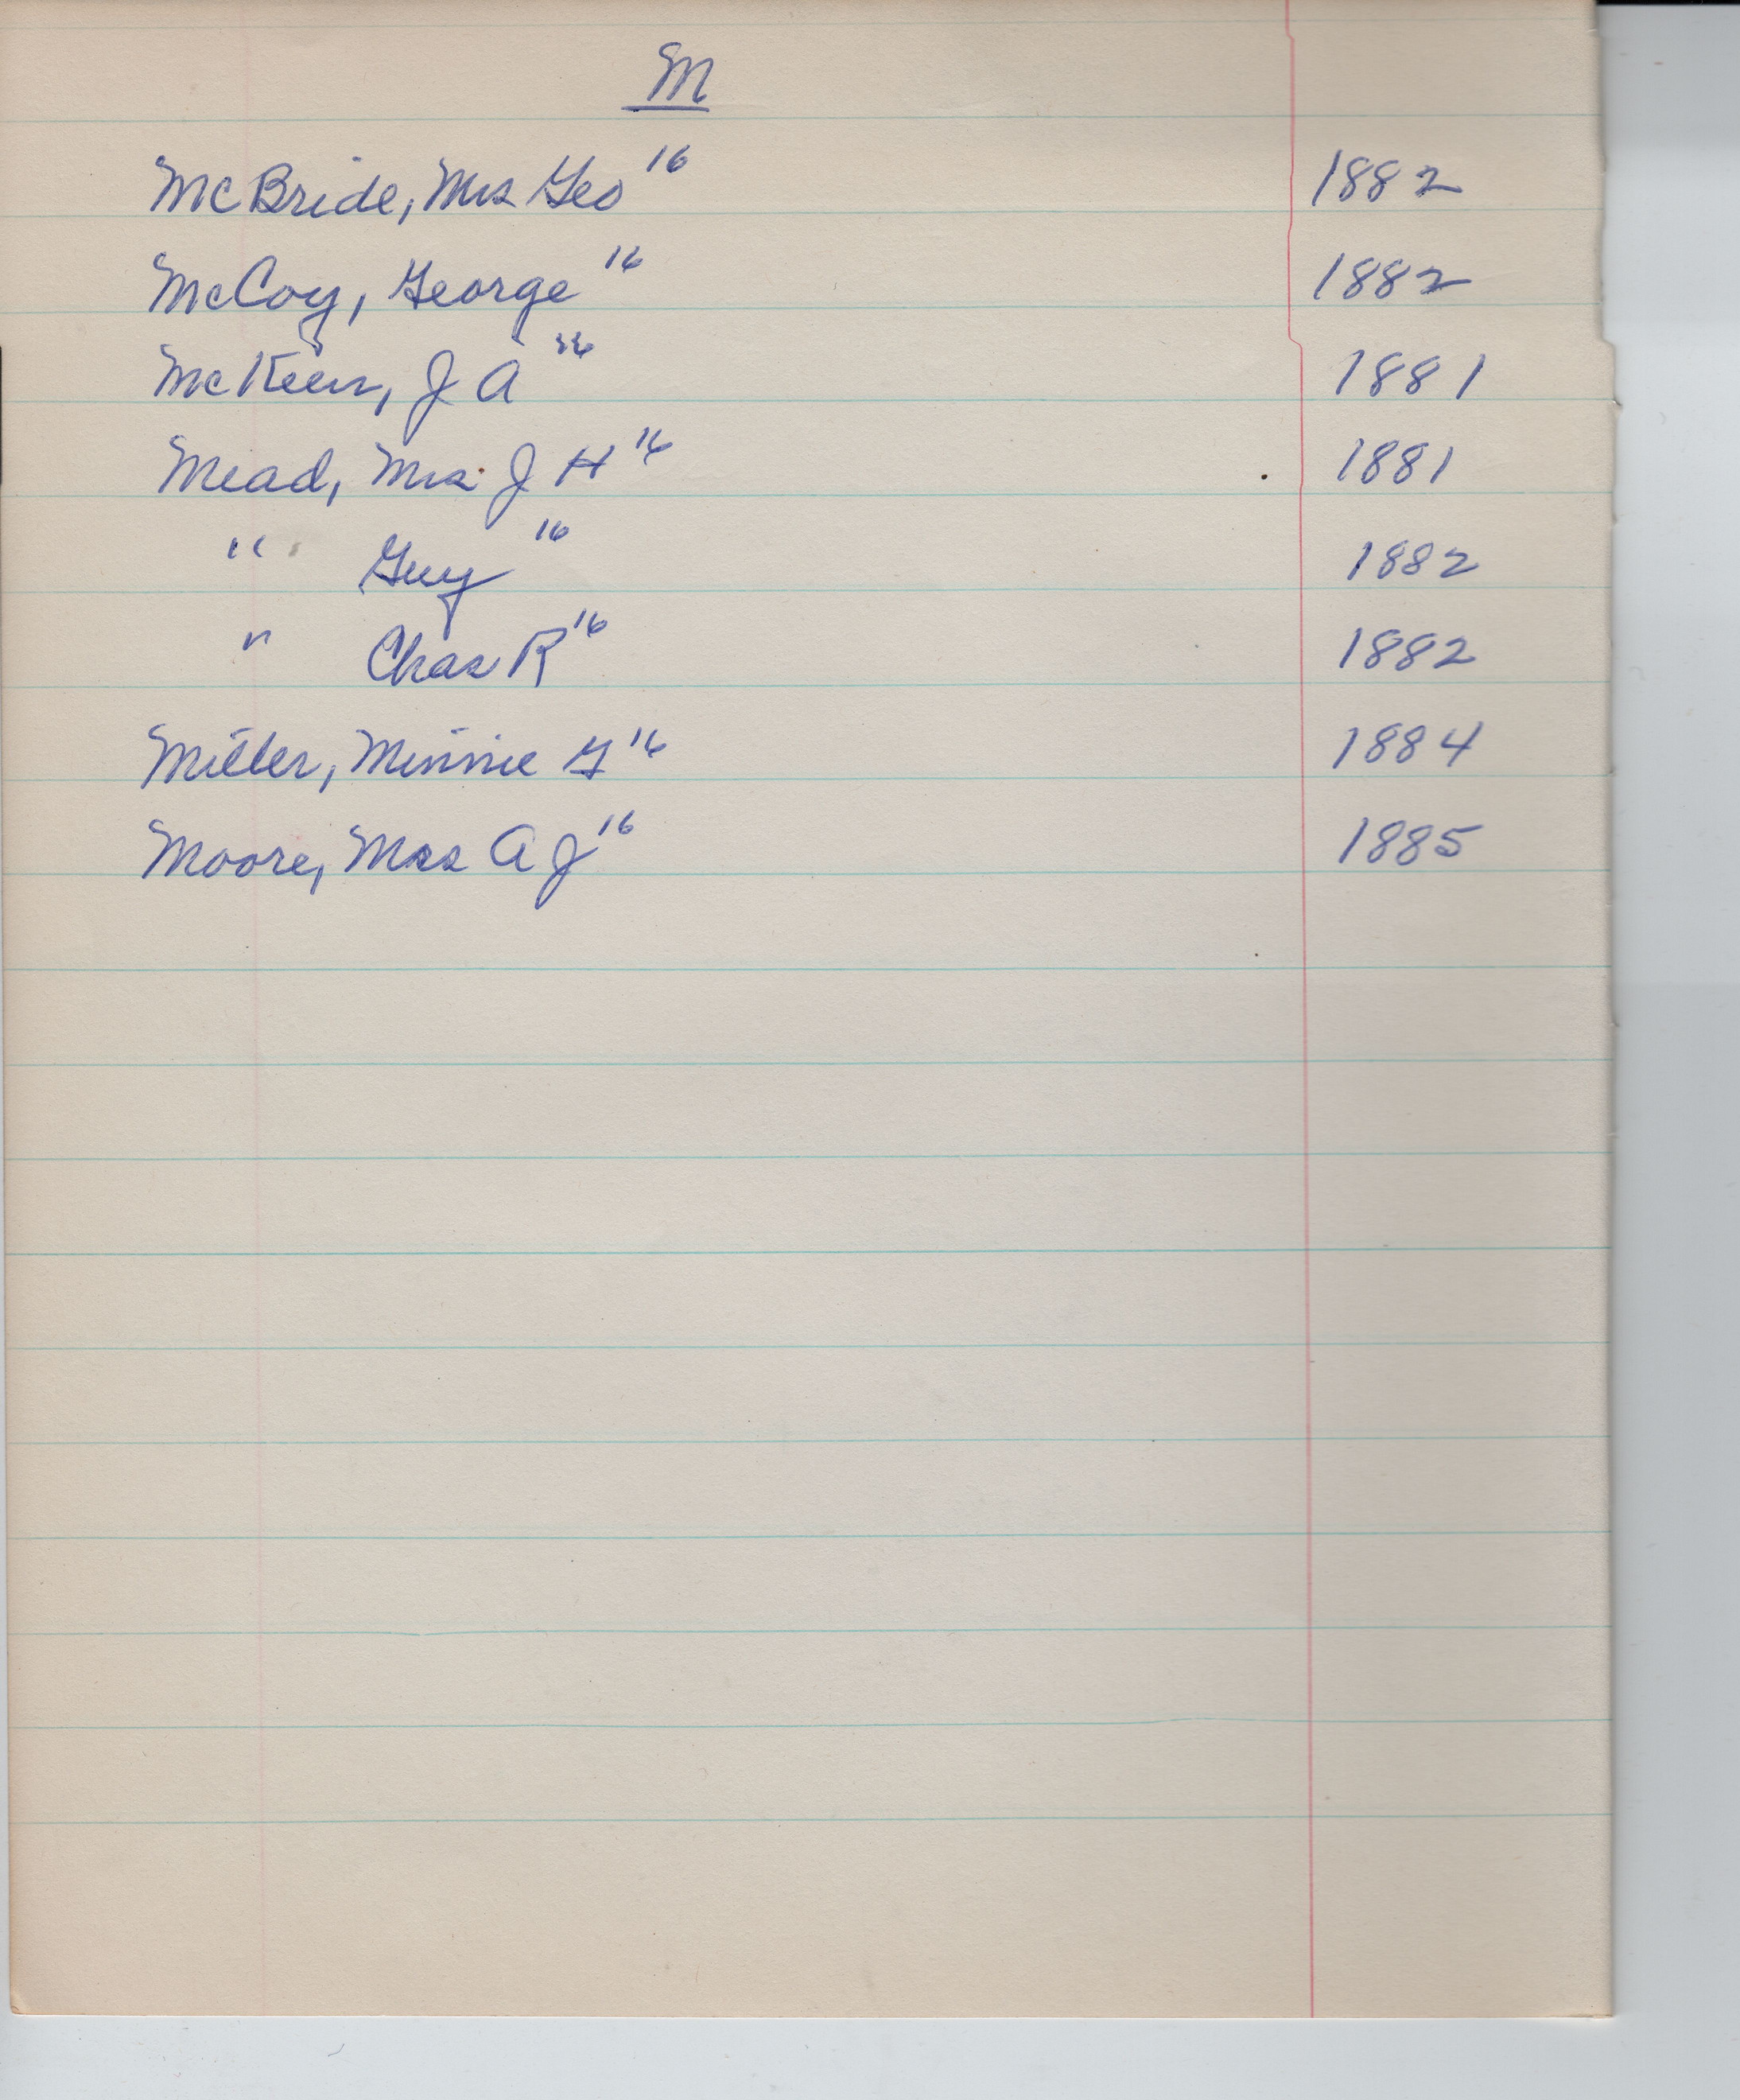 M
McBride, Mrs Geo 16 1882
McCoy, George 16 1882
McKeen, J A 16 1881
Mead, Mrs. J H 16 1881
" Guy 16 1882
" Chas R 16 1882
Miller, Minnie G 16 1884
Moore, Mrs A J 16 1885